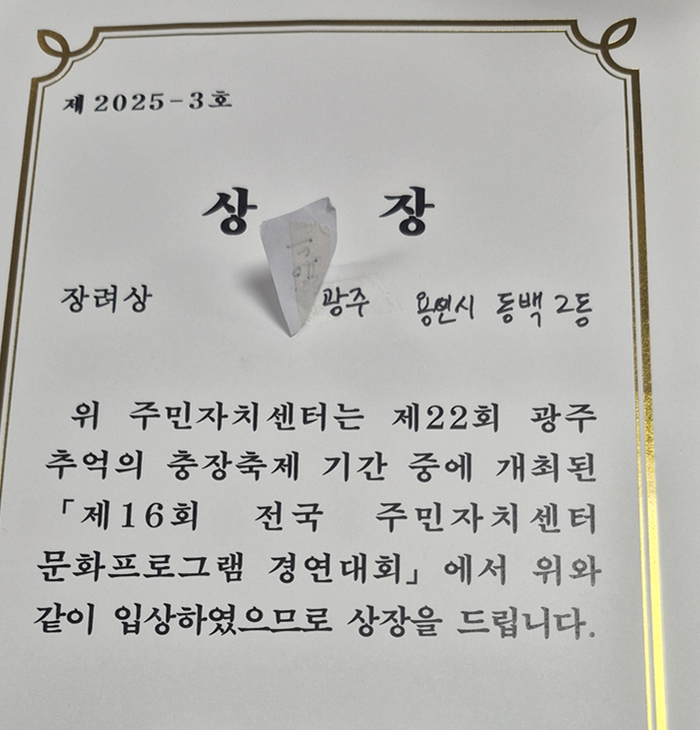 제 2025-3호
상 장
장려상 광주 용인시 동백2동
위 주민자치센터는 제22회 광주
추억의 충장축제 기간 중에 개최된
「제16회 전국 주민자치센터
문화프로그램 경연대회」에서 위와
같이 입상하였으므로 상장을 드립니다.